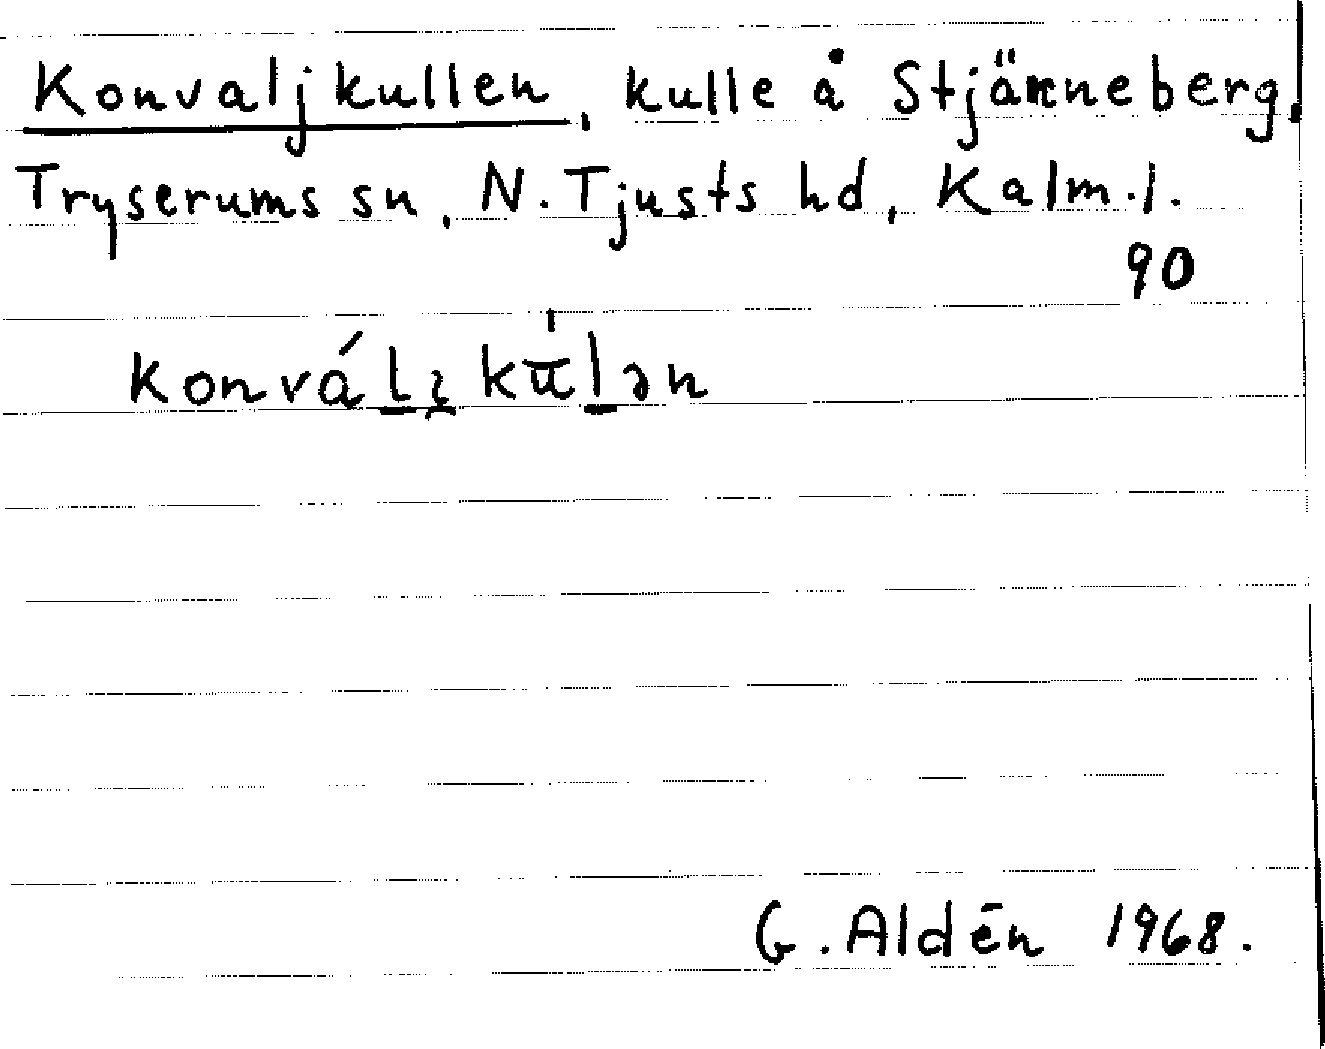 Konvaljkullen, kulle å Stjärneberg,
Tryserums sn, N. Tjusts hd, Kalm.l.
90
G. Aldén 1968.